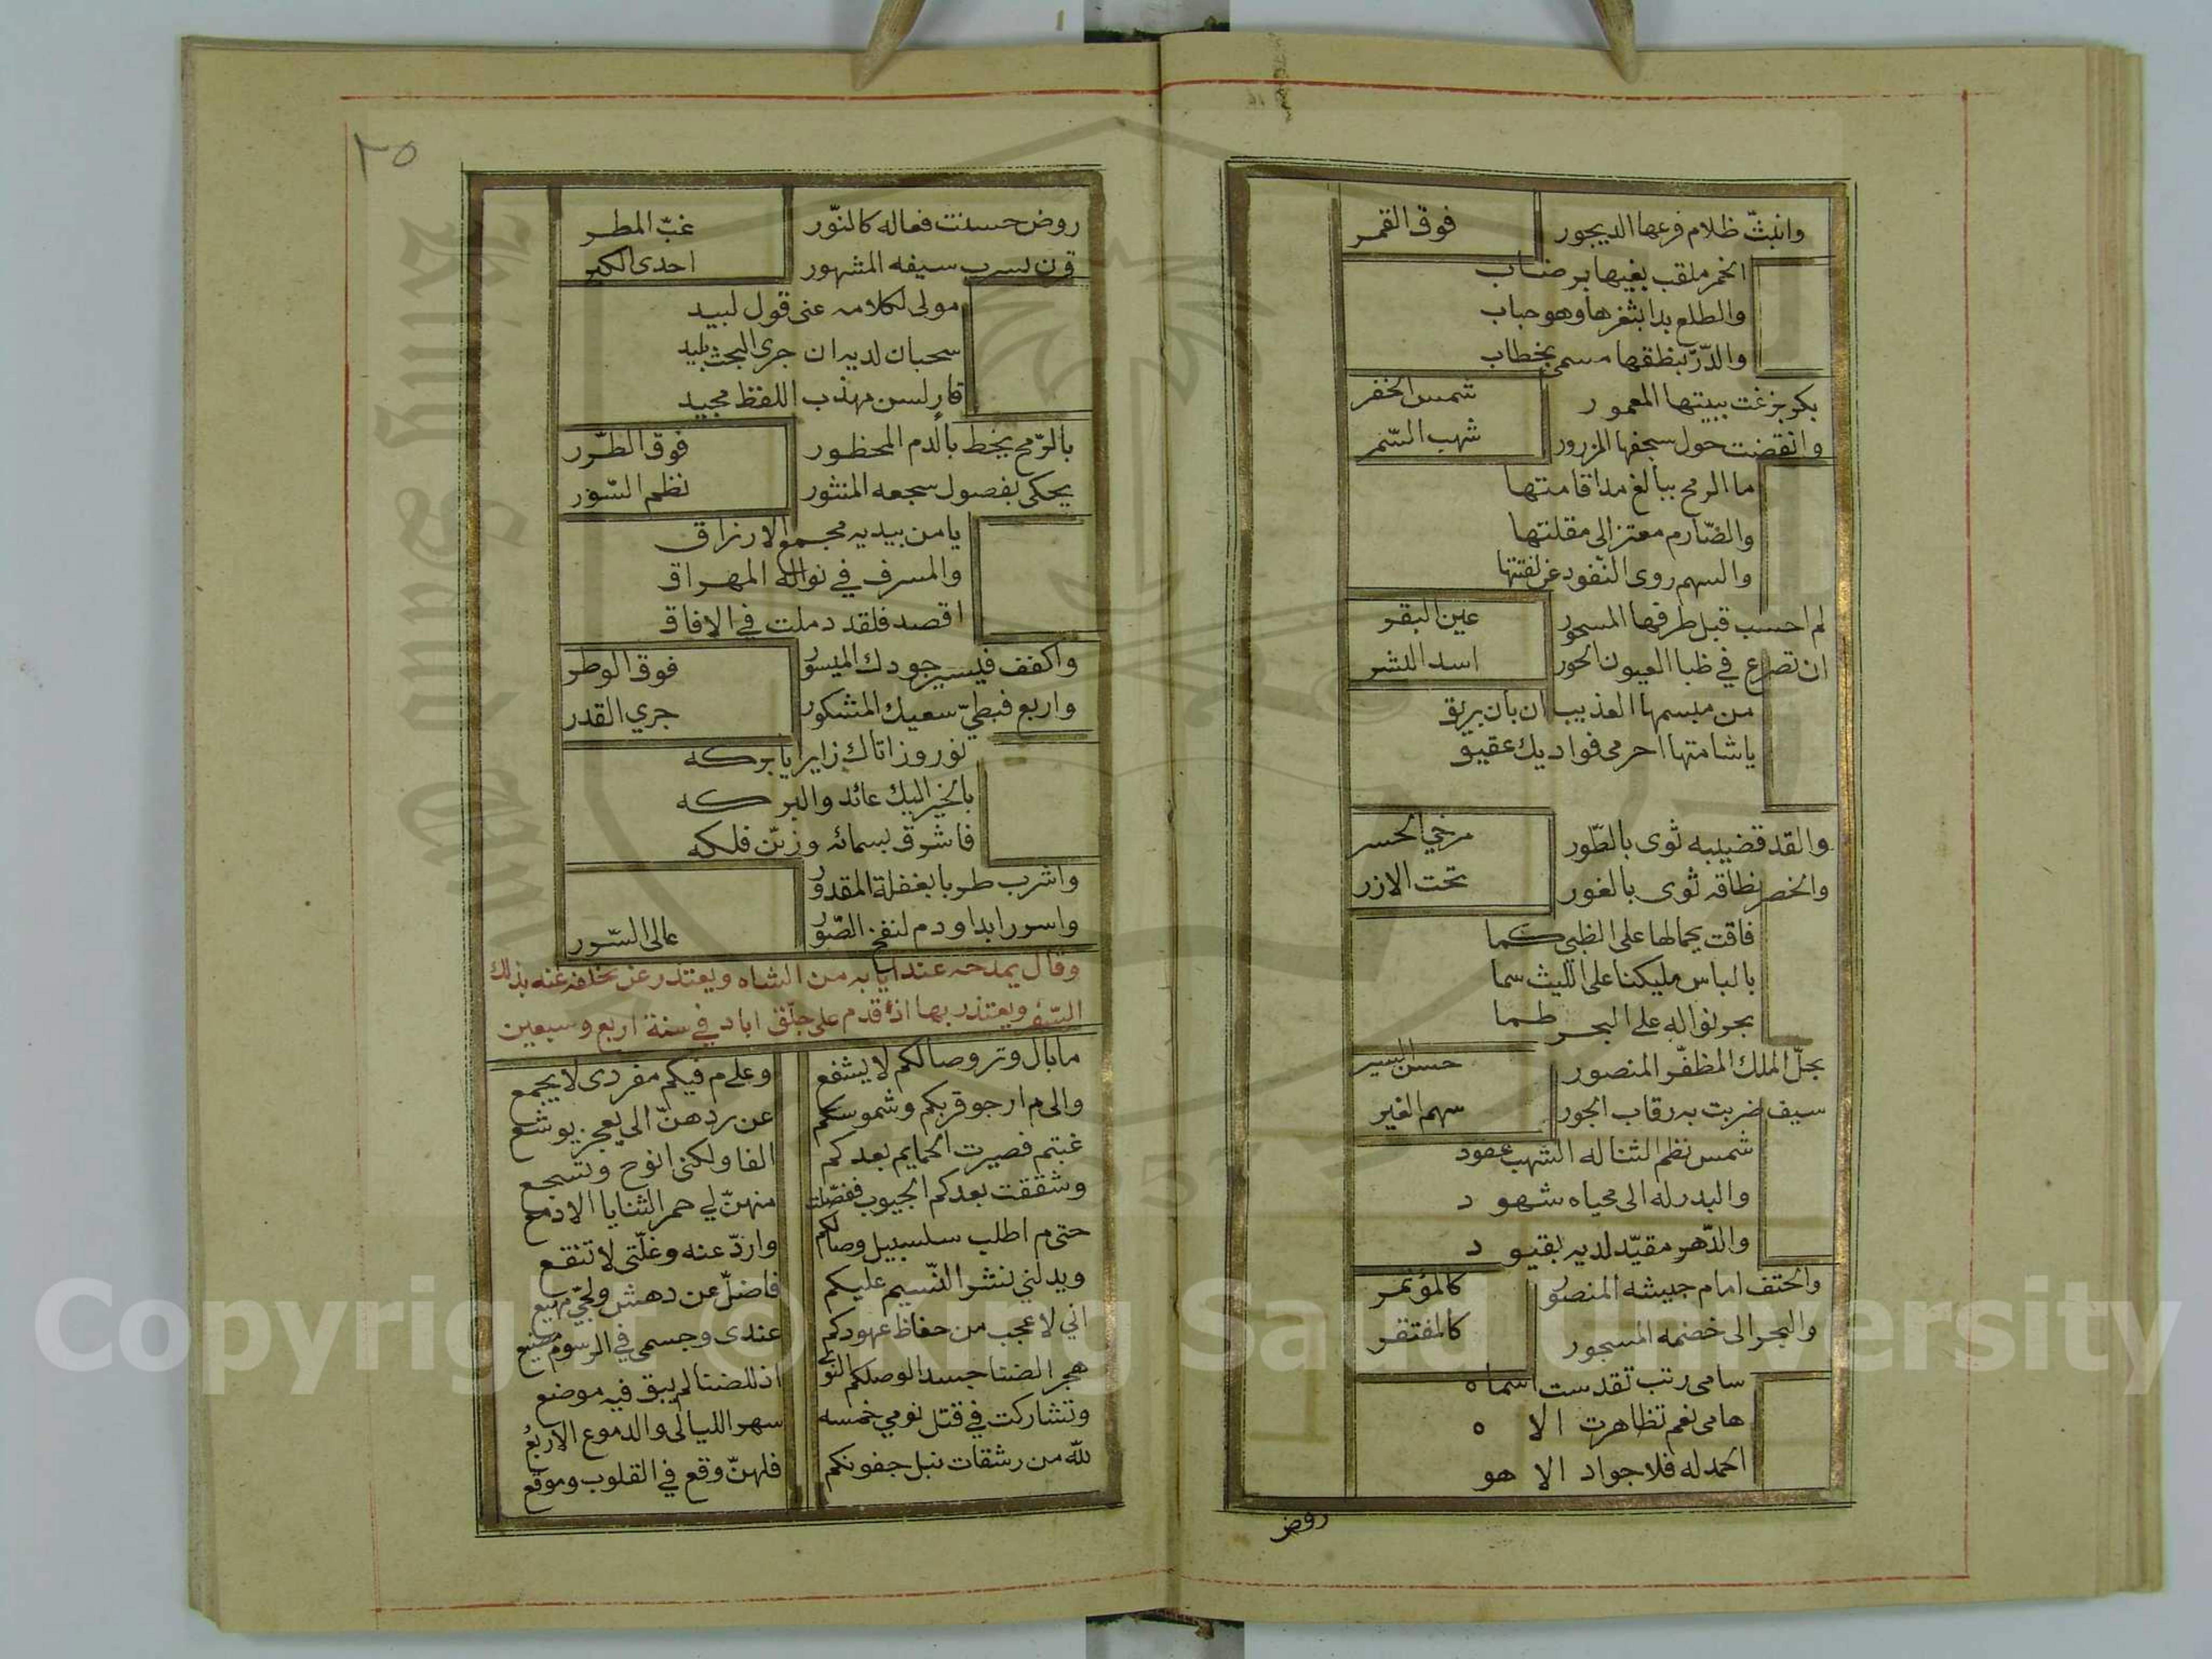 وانبثّ ظلام فرعها الديجور فوق القمر
الخمر ملقب بغيها برضاب
والطلع بدا بثغرها وهو حباب
والدّرّ بنطقها مسمى بخطاب
بكر بزغت ببيتها المعمور شمس الخفر
وانقضت حول سجفها المزرور شهب السّمر
ما الرمح ببالغ مدا قامتها
والصّارم معتز الى مقلتها
والسهم روى النفود عن لفتتها
لم احسب قبل طرفها المسحور عين البقر
ان تصرع في ظبا العيون الحور اسد البشر
من مبسمها العذيب ان بان بريق
ياشامتها احرمى فواديك عقيق
والقد قضيبه ثوى بالطّور مرخي الحسر
والخصر نطاقه ثوى بالغور تحت الازر
فاقت بجمالها على الظبى كما
بالباس مليكنا على الليث سما
بحر نواله على البحر طما
نجلّ الملك المظفّر المنصور حسن السير
سيف ضربت به رقاب الجور سهم الغير
شمس نظم الثنا له الشهب عقود
والبدر له الى محياه شهود
والدّهر مقيّد لديه بقيود
والحتف امام جيشه المنصور كالمؤتمر
والبحر الى خضمه المسجور كالمفتقر
سامى رتب تقدست اسماه
هامى نعم تظاهرت الاه
احمد له فلا جواد الا هو
روض
٢٥
روض حسنت فعاله كالنّور غبّ المطر
قرن بسرب سيفه المشهور احدى الكبر
مولى لكلامه عنى قول لبيد
سحبان لديه ان جرى البحث بليد
قار لسن مهذب اللفظ مجيد
بالرّمح يخط بالدم المحظور فوق الطّرر
يحكى بفصول سجعه المنثور نظم السّور
يا من بيديه مجمع الارزاق
والمسرف في نواله المهراق
اقصد فلقد دملت في الافاق
واكفف فيسير جودك الميسور فوق الوطر
واربع فبطيّ سعيك المشكور جري القدر
نوروز اتاك زايرا يا بركه
بالخير اليك عائد والبركه
فاشرق بسمائه وزيّن فلكه
واشرب طربا بغفلة المقدور
واسور ابدا ودم لنفخ الصّور عالى السّور
وقال يمدحه عند ايابه من الشاه ويعتذر عن تخلفه عنه بذلك
السّفر ويعتذر بها اذ قدم على جلّق اباد في سنة اربع وسبعين
مابال وتر وصالكم لا يشفع وعلى م فيكم مفردى لا يجمع
والى م ارجو قربكم وشموسكم عن ردهنّ الى يعجز يوشع
غبتم فصيرت الحمايم بعدكم الفا ولكنى انوح وتسجع
وشققت بعدكم الجيوب ففصّلت منهنّ لي حمر الثنايا الادمع
حتى م اطلب سلسبيل وصالكم واردّ عنه وغلّتى لا تنقع
ويدلني نشر النّسيم عليكم فاضلّ عن دهش ولحبّي مهيع
اني لاعجب من حفاظ عهودكم عندى وجسمى في الرسوم مضيع
هجر الضنا جسدا لوصلكم النوى اذ للضنا لم يبق فيه موضع
وتشاركت في قتل نومي خمسه سهر الليالى والدموع الاربع
لله من رشقات نبل جفونكم فلهنّ وقع في القلوب وموقع
Copyright © King Saud University